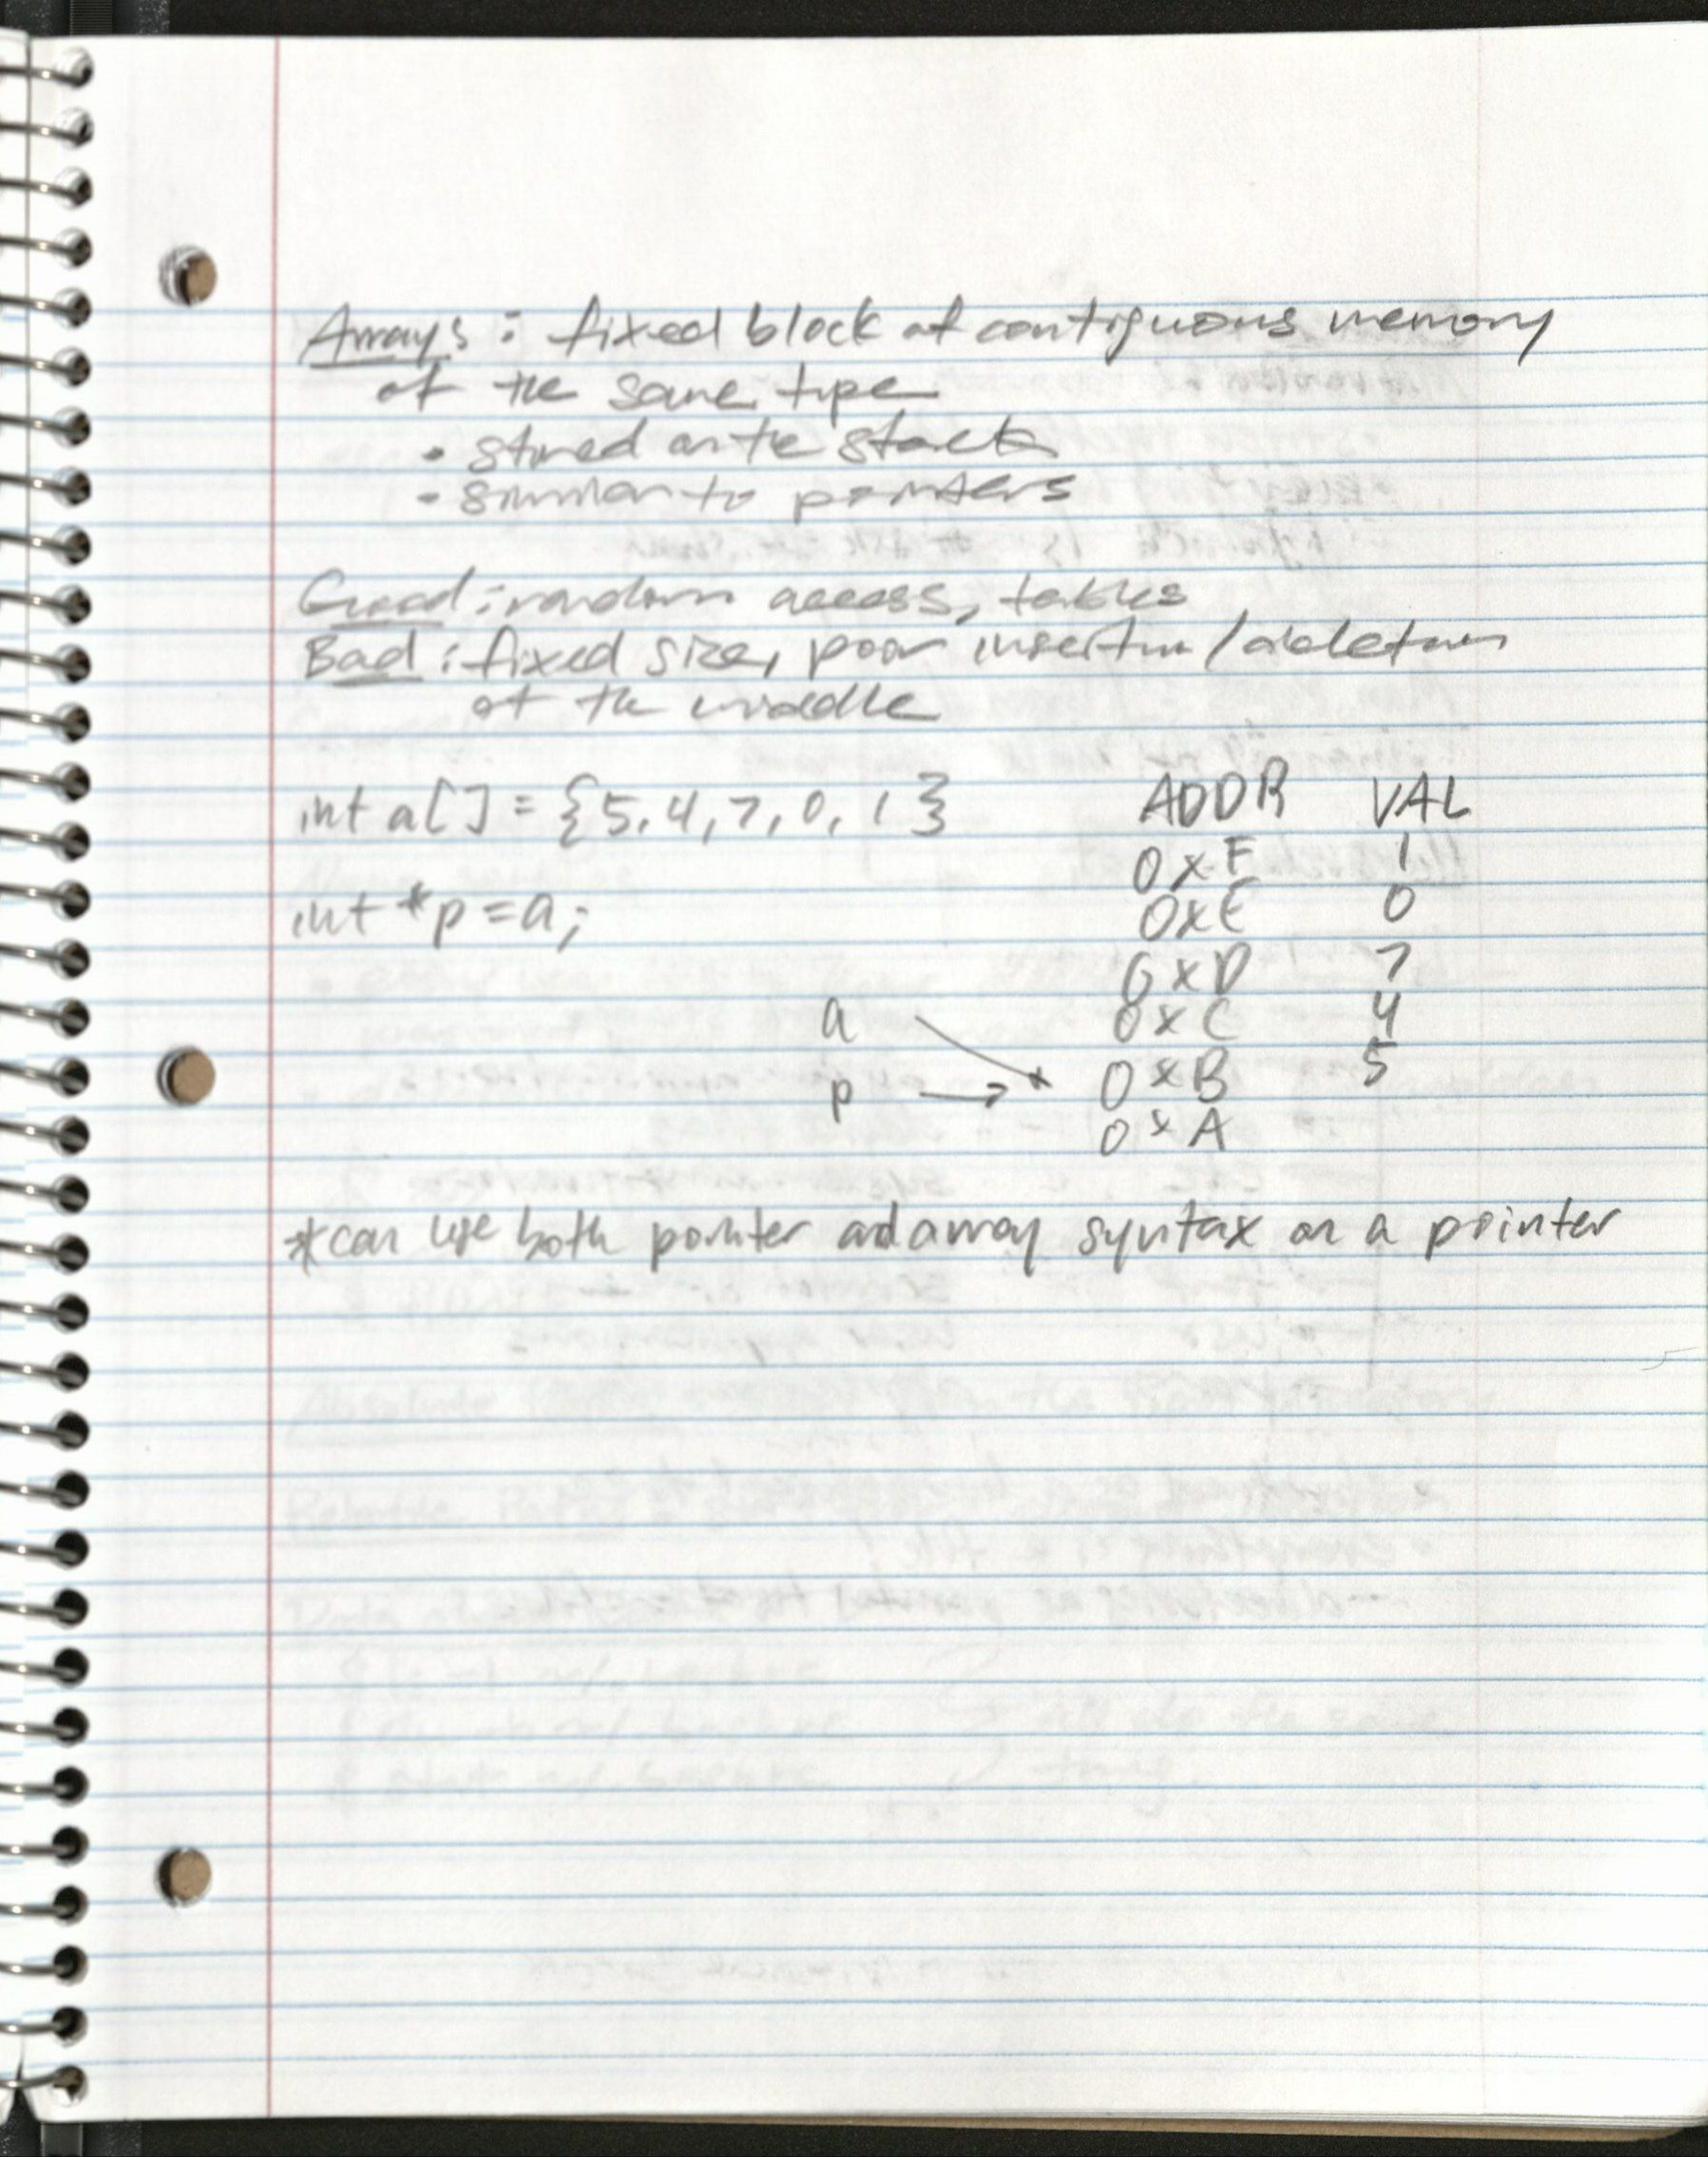 Arrays : fixed block of contiguous memory
of the same type
• stored on the stack
• similar to pointers
Good : random access, tables
Bad : fixed size, poor insertion / deletion
at the middle
int a[] = {5, 4, 7, 0, 1}
ADDR VAL
0xF 1
0xE 0
int *p = a;
0xD 7
a 0xC 4
p 0xB 5
0xA
*can use both pointer and array syntax on a pointer